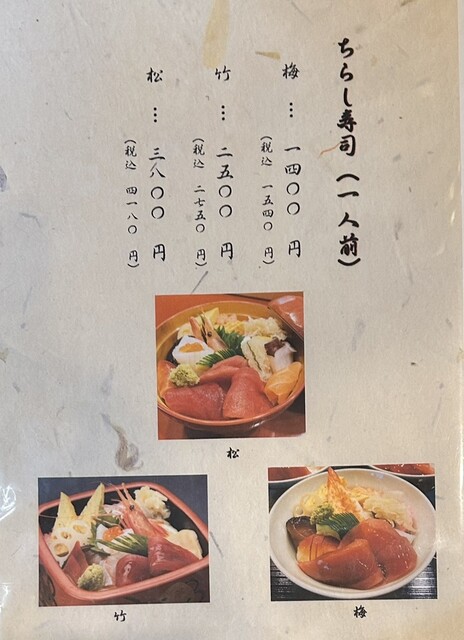 ちらし寿司(一人前)
梅…一四〇〇円
(税込 一五四〇円)
竹…二五〇〇円
(税込 二七五〇円)
松…三八〇〇円
(税込 四一八〇円)
松
竹
梅